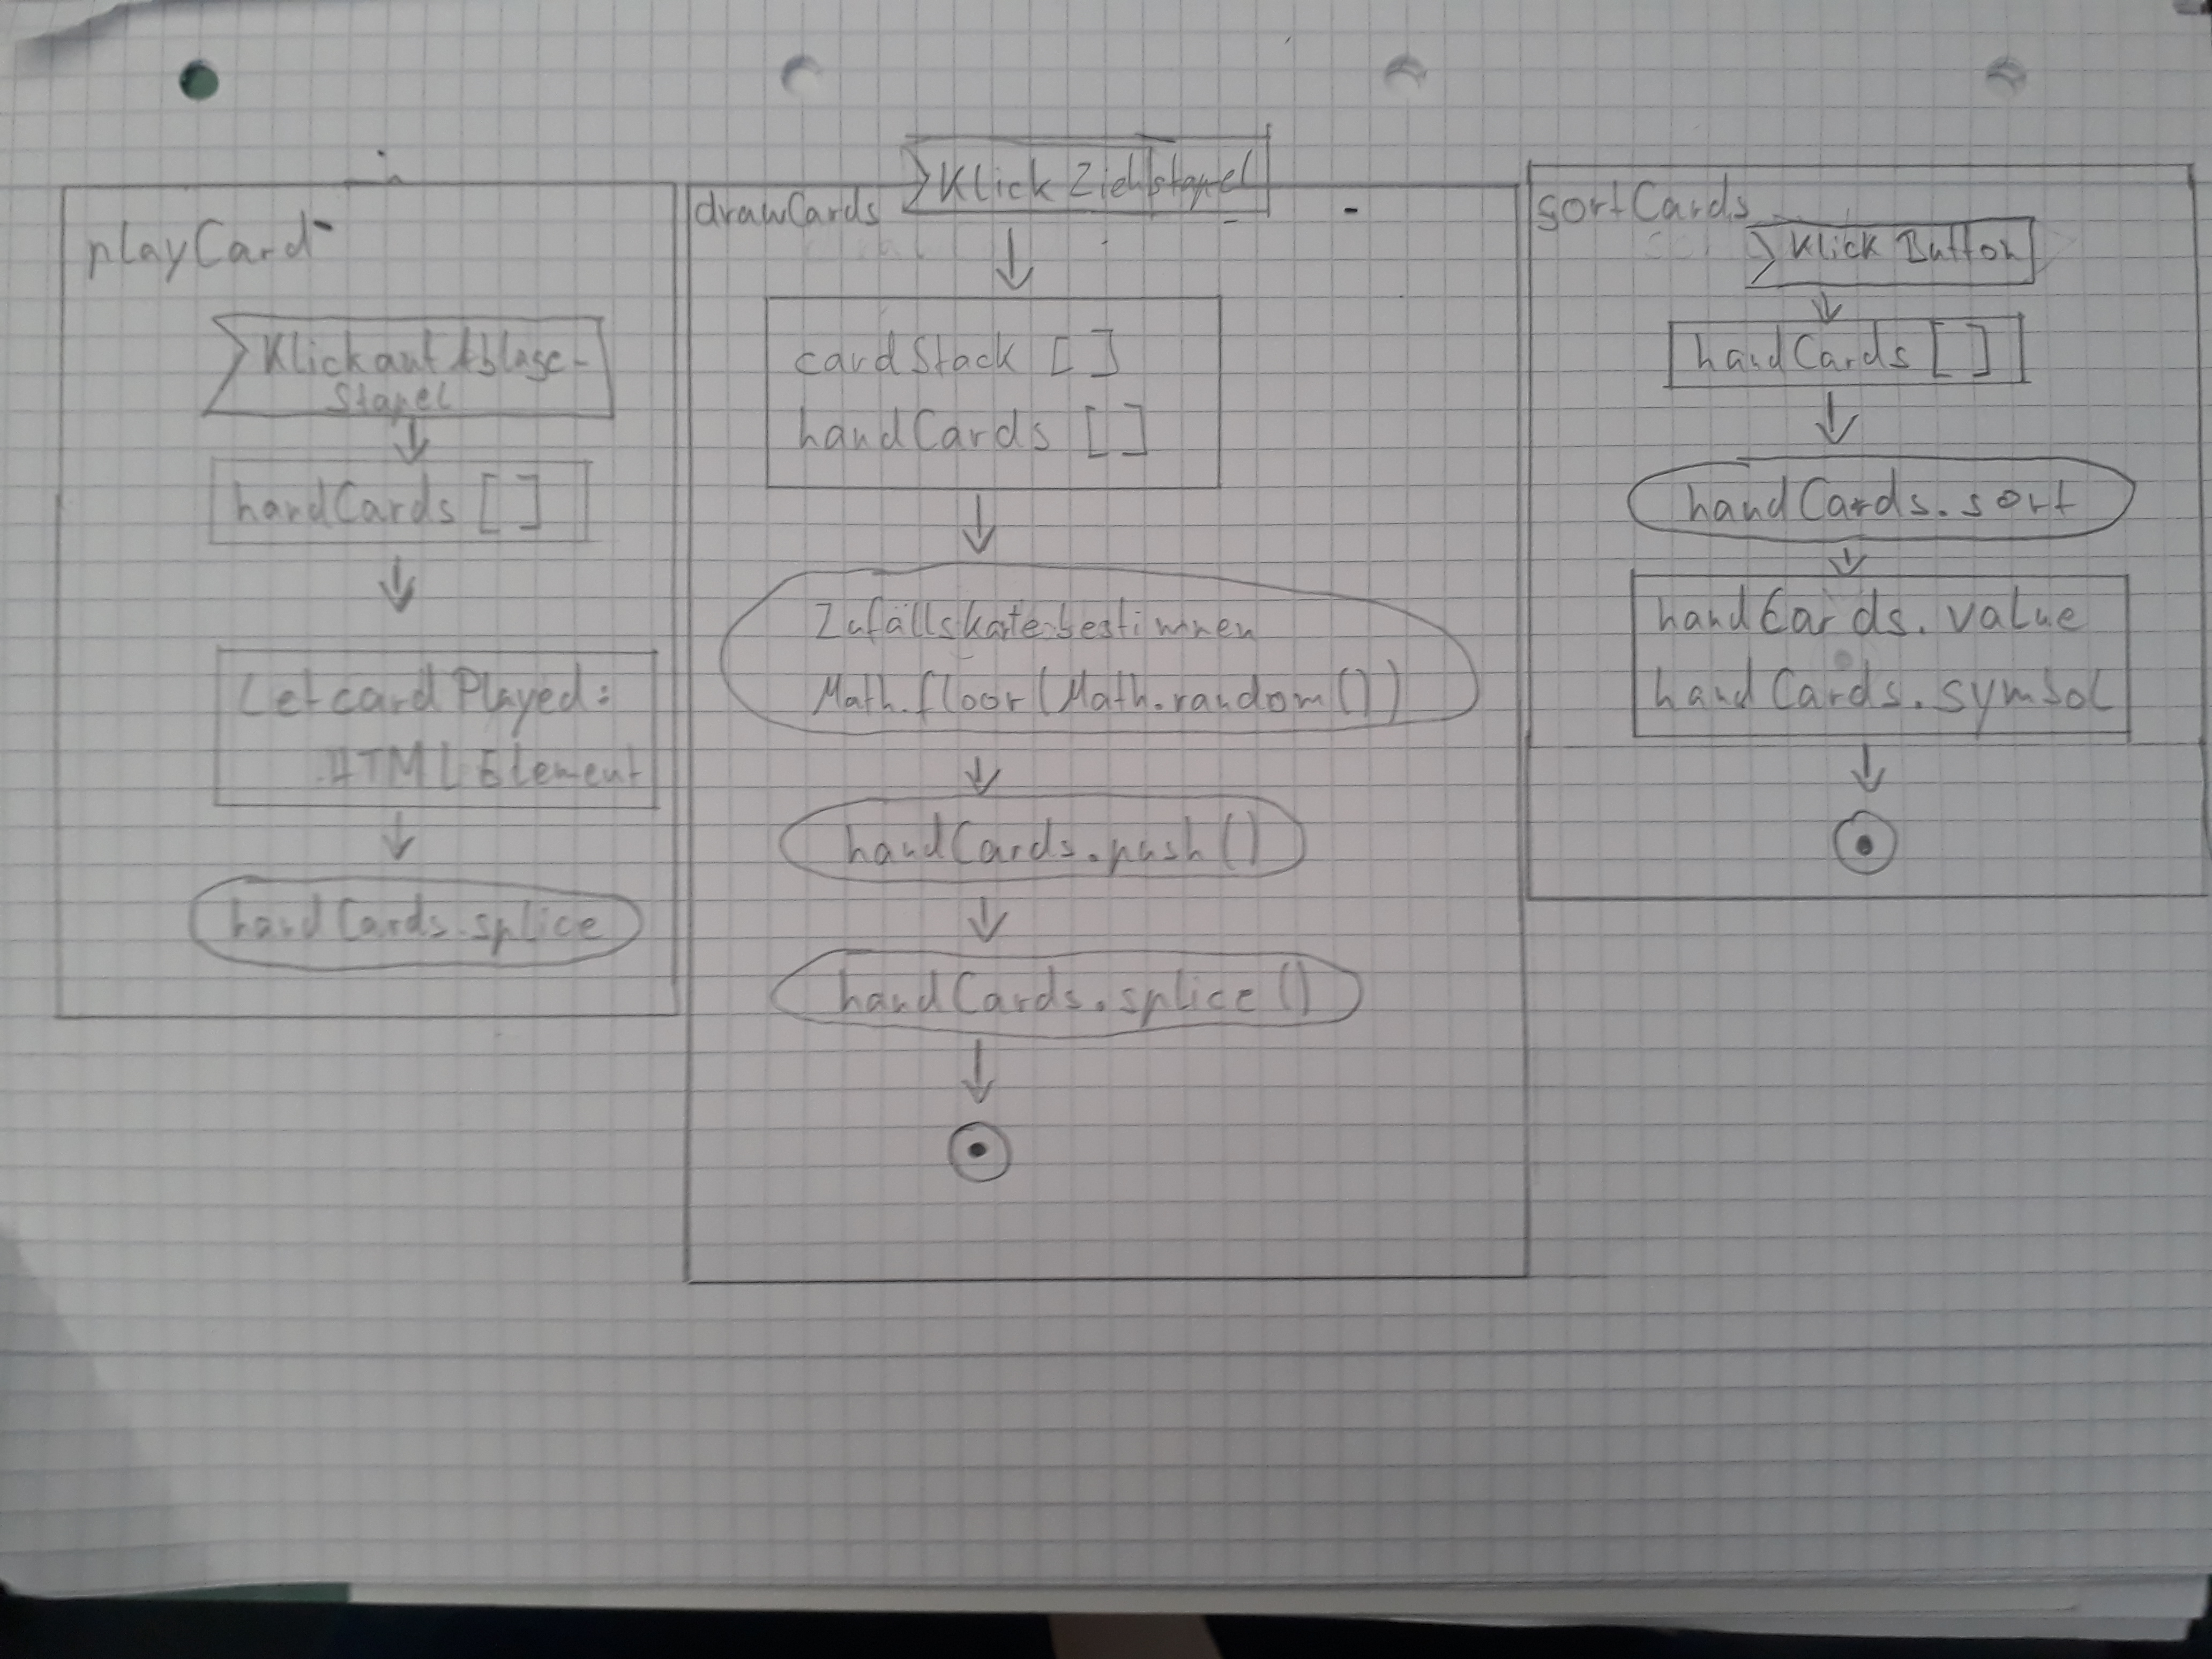 playCard
Klick auf Ablage-
Stapel
handCards []
Let cardPlayed:
HTMLElement
handCards.splice
drawCards
Klick Ziehstapel
cardStack []
handCards []
Zufällskarte bestimmen
Math.floor(Math.random())
handCards.push()
handCards.splice()
sortCards
Klick Button
handCards []
handCards.sort
handCards.value
handCards.symbol